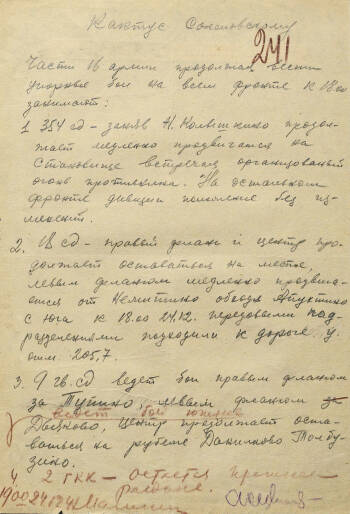 Кактус Соколовскому
241
Части 16 армии продолжая вести
упорные бои на всем фронте к 18.00
занимают:
1 354 сд – заняв Н. Колышкино продол-
жает медленно продвигатся на
Становище встречая организованый
огонь противника. На остальном
фронте дивизии положение без из-
менений.
2. 18 сд – правый фланг и центр про-
должает оставаться на месте,
левым флангом медленно продвига-
ется от обходя
с юга к 18.00 24.12. передовыми под-
разделениями подходили к дороге у
отм. 205,7.
3. 9 гв. сд ведет бои правым флангом
за левым флангом за
ведет бои южнее
Дьяково, центр продолжает оста-
ваться на рубеже Данилково
4 2 ГКК – остается прежнем
районе.
19 00 24 12 41 Малинин